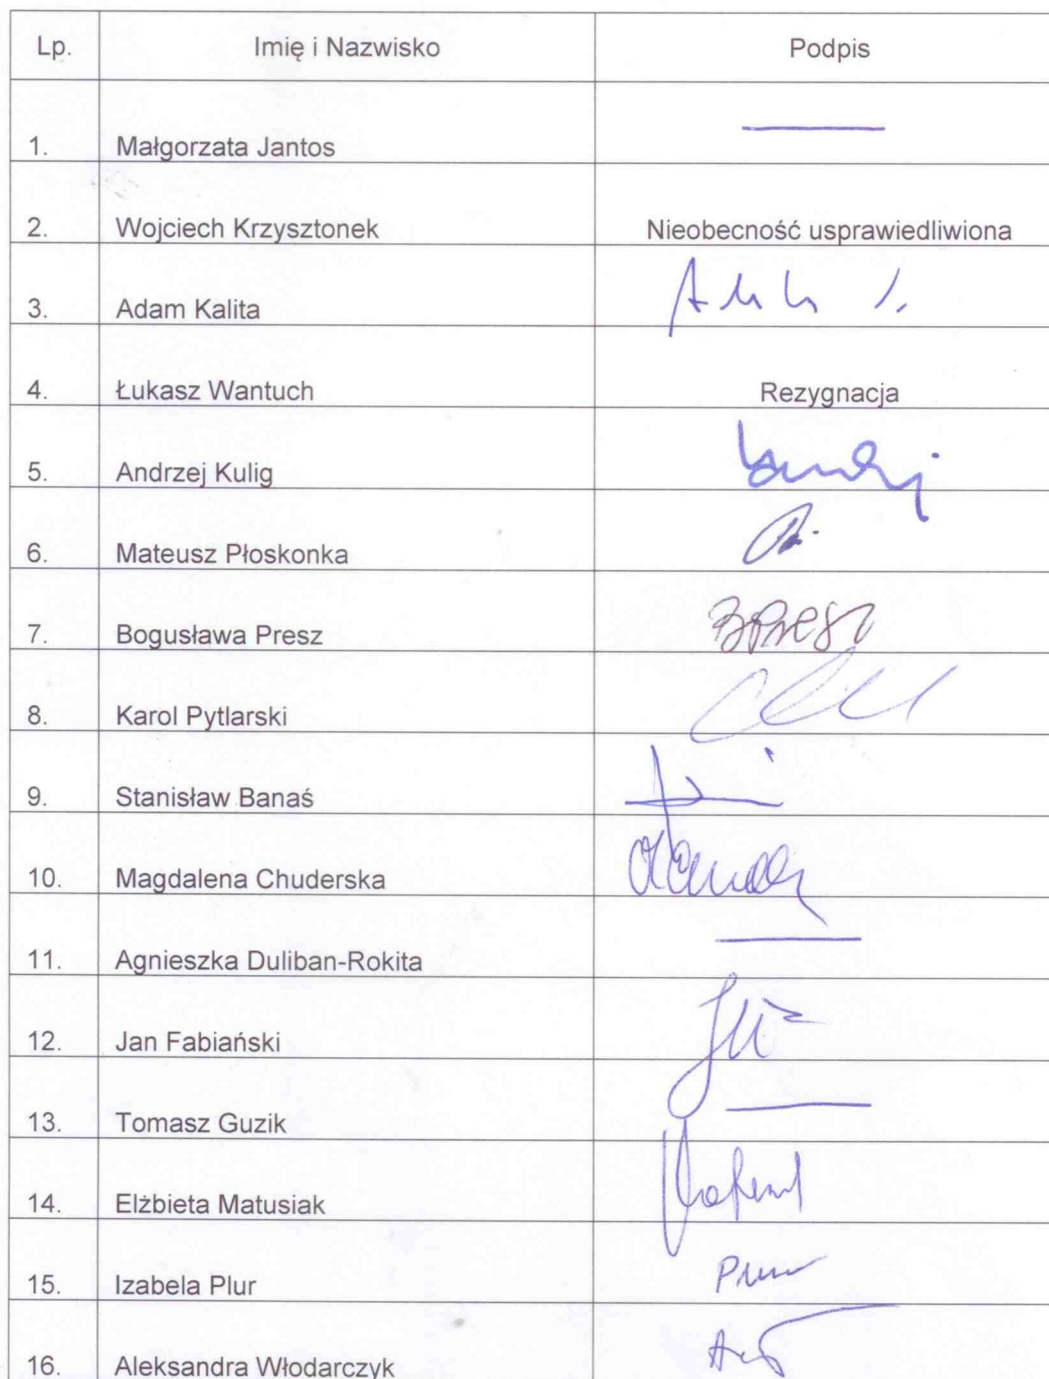 Lp. Imię i Nazwisko Podpis
1. Małgorzata Jantos
2. Wojciech Krzysztonek Nieobecność usprawiedliwiona
3. Adam Kalita
4. Łukasz Wantuch Rezygnacja
5. Andrzej Kulig
6. Mateusz Płoskonka
7. Bogusława Presz
8. Karol Pytlarski
9. Stanisław Banaś
10. Magdalena Chuderska
11. Agnieszka Duliban-Rokita
12. Jan Fabiański
13. Tomasz Guzik
14. Elżbieta Matusiak
15. Izabela Plur
16. Aleksandra Włodarczyk